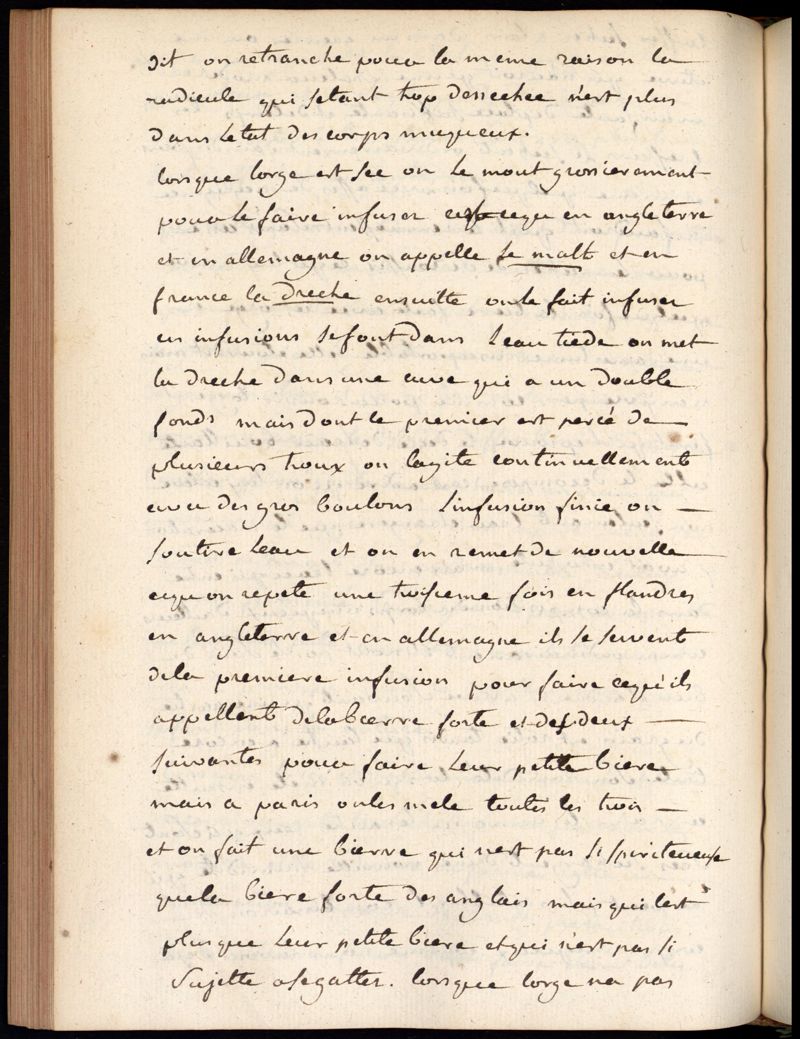 dit on retranche pour la meme raison la
radicule qui setant trop dessechee n'est plus
dans letat des corps muqueux.
lorsque lorge est sec on le mout grossierement
pour le faire infuser cequ en angleterre
et en allemagne on appelle le malt et en
france la dreche ensuitte on le fait infuser
ces infusions se font dans leau tiede on met
la dreche dans une cuve qui a un double
fonds mais dont le premier est percé de
plusieurs troux on lagite continuellement
avec des gros boulons Linfusion finie on
soutire Leau et on en remet de nouvelle
cequ on repete une troisieme fois en flandres
en angleterre et en allemagne ils se servent
dela premiere infusion pour faire cequ'ils
appellent de la bierre forte et des deux
suivantes pour faire Leur petite biere
mais a paris on les mele toutes les trois
et on fait une bierre qui nest pas si spiriteuse
que la biere forte des anglais mais qui lest
plus que Leur petite biere et qui n'est pas si
sujette a se gatter. lorsque lorge na pas